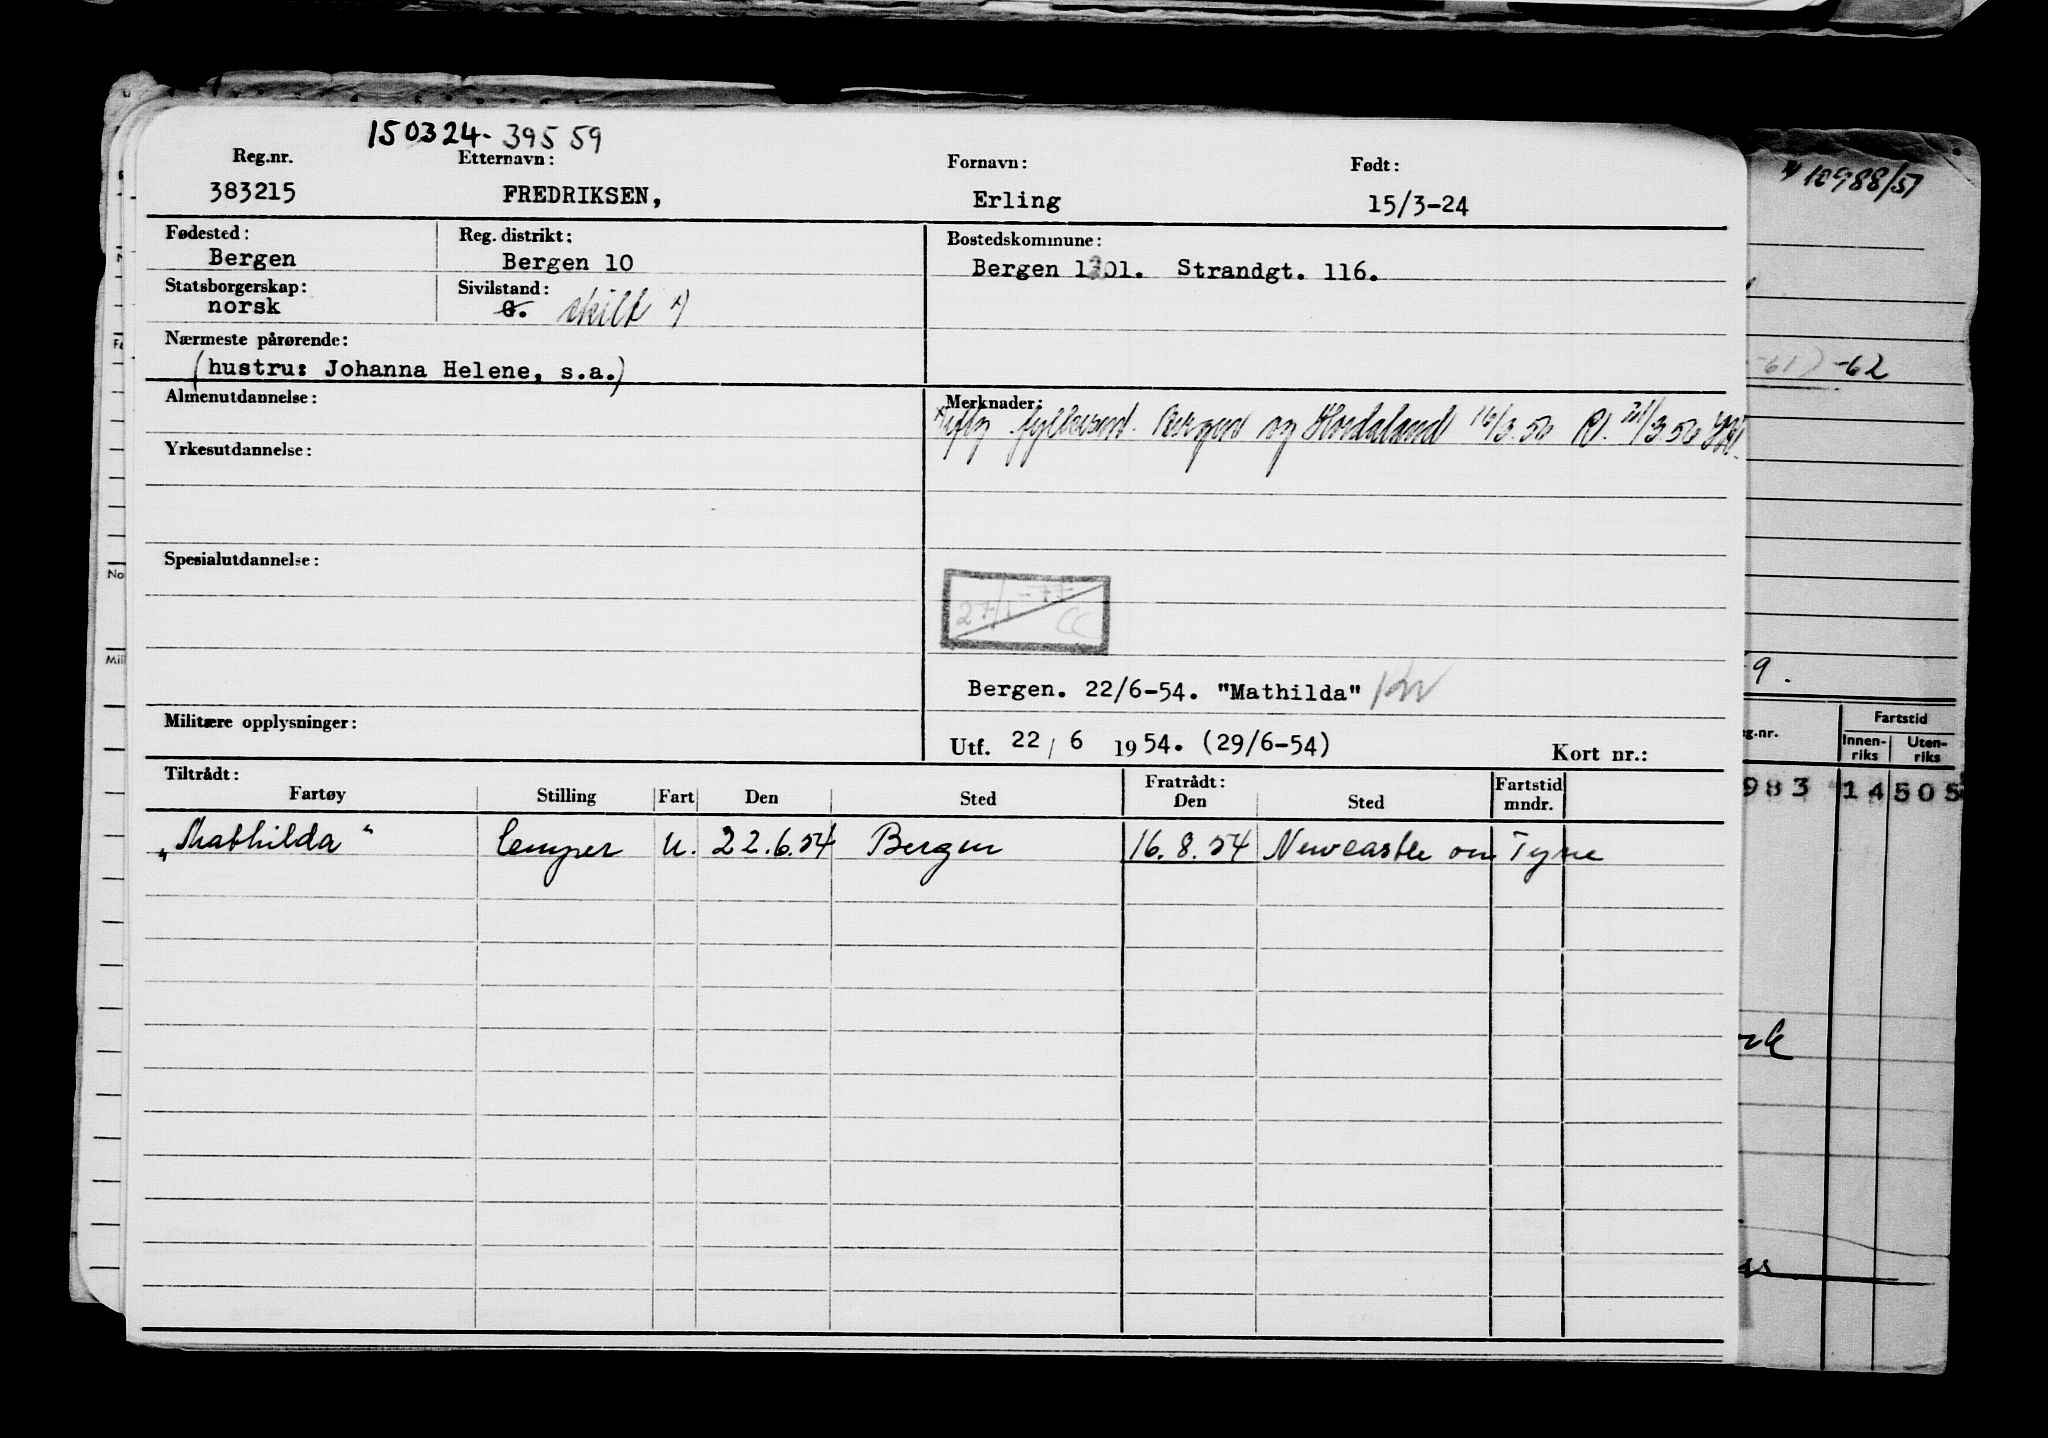 150324-39559
Reg.nr. Etternavn: Fornavn: Født:
383215 FREDRIKSEN, Erling 15/3-24
10988/51
Fødested: Reg. distrikt: Bostedskommune:
Bergen Bergen 10 Bergen 1301. Strandgt. 116.
Statsborgerskap: Sivilstand:
norsk G. skilt x)
Nærmeste pårørende:
(hustru: Johanna Helene, s.a.)
-61) -62
Almenutdannelse: Merknader:
fylkesmt. Bergen og Hordaland 16/3.56 21/3 56
Yrkesutdannelse:
Spesialutdannelse:
27/1-77
CC
9.
Bergen. 22/6-54. "Mathilda"
Militære opplysninger:
Utf. 22/6 1954. (29/6-54) Kort nr.:
g.nr. Fartstid
Innen-riks Uten-riks
983 14 505
Tiltrådt: Fratrådt:
Fartøy Stilling Fart Den Sted Den Sted Fartstid mndr.
„Mathilda" lemper U. 22.6.54 Bergen 16.8.54 Newcastle on Tyne